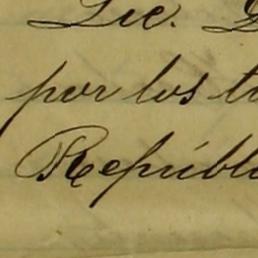 Lic.
por los
Repúbl